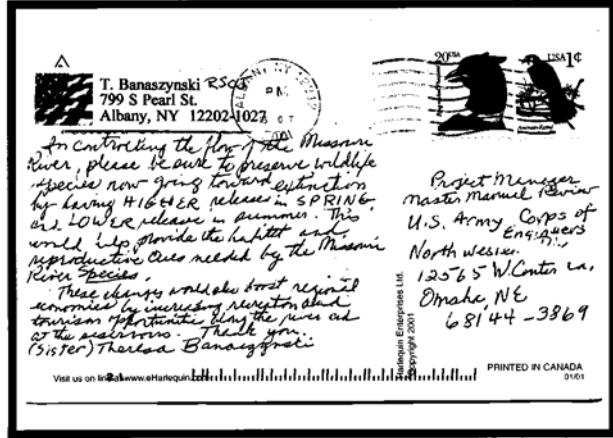 T. Banaszynski RSCJ
799 S Pearl St.
Albany, NY 12202-1027
ALBANY NY
PM
OCT
2001
20 USA
USA 1¢
American Kestrel
In controlling the flow of the Missouri
River, please be sure to preserve wildlife
species now going toward extinction
by having HIGHER releases in SPRING
and LOWER releases in summer. This
would help provide the habitat and
reproductive cues needed by the Missouri
River Species.
These changes would also boost regional
economies by increasing recreation and
tourism opportunities along the river and
at the reservoirs. Thank you.
(Sister) Theresa Banaszynski
Project Manager
Master Manual Review
U.S. Army Corps of
Engineers
North western
12565 W. Center
Omaha, NE
68144-3869
Harlequin Enterprises Ltd.
Copyright 2001
Visit us on line at www.eHarlequin.com
PRINTED IN CANADA
01/01